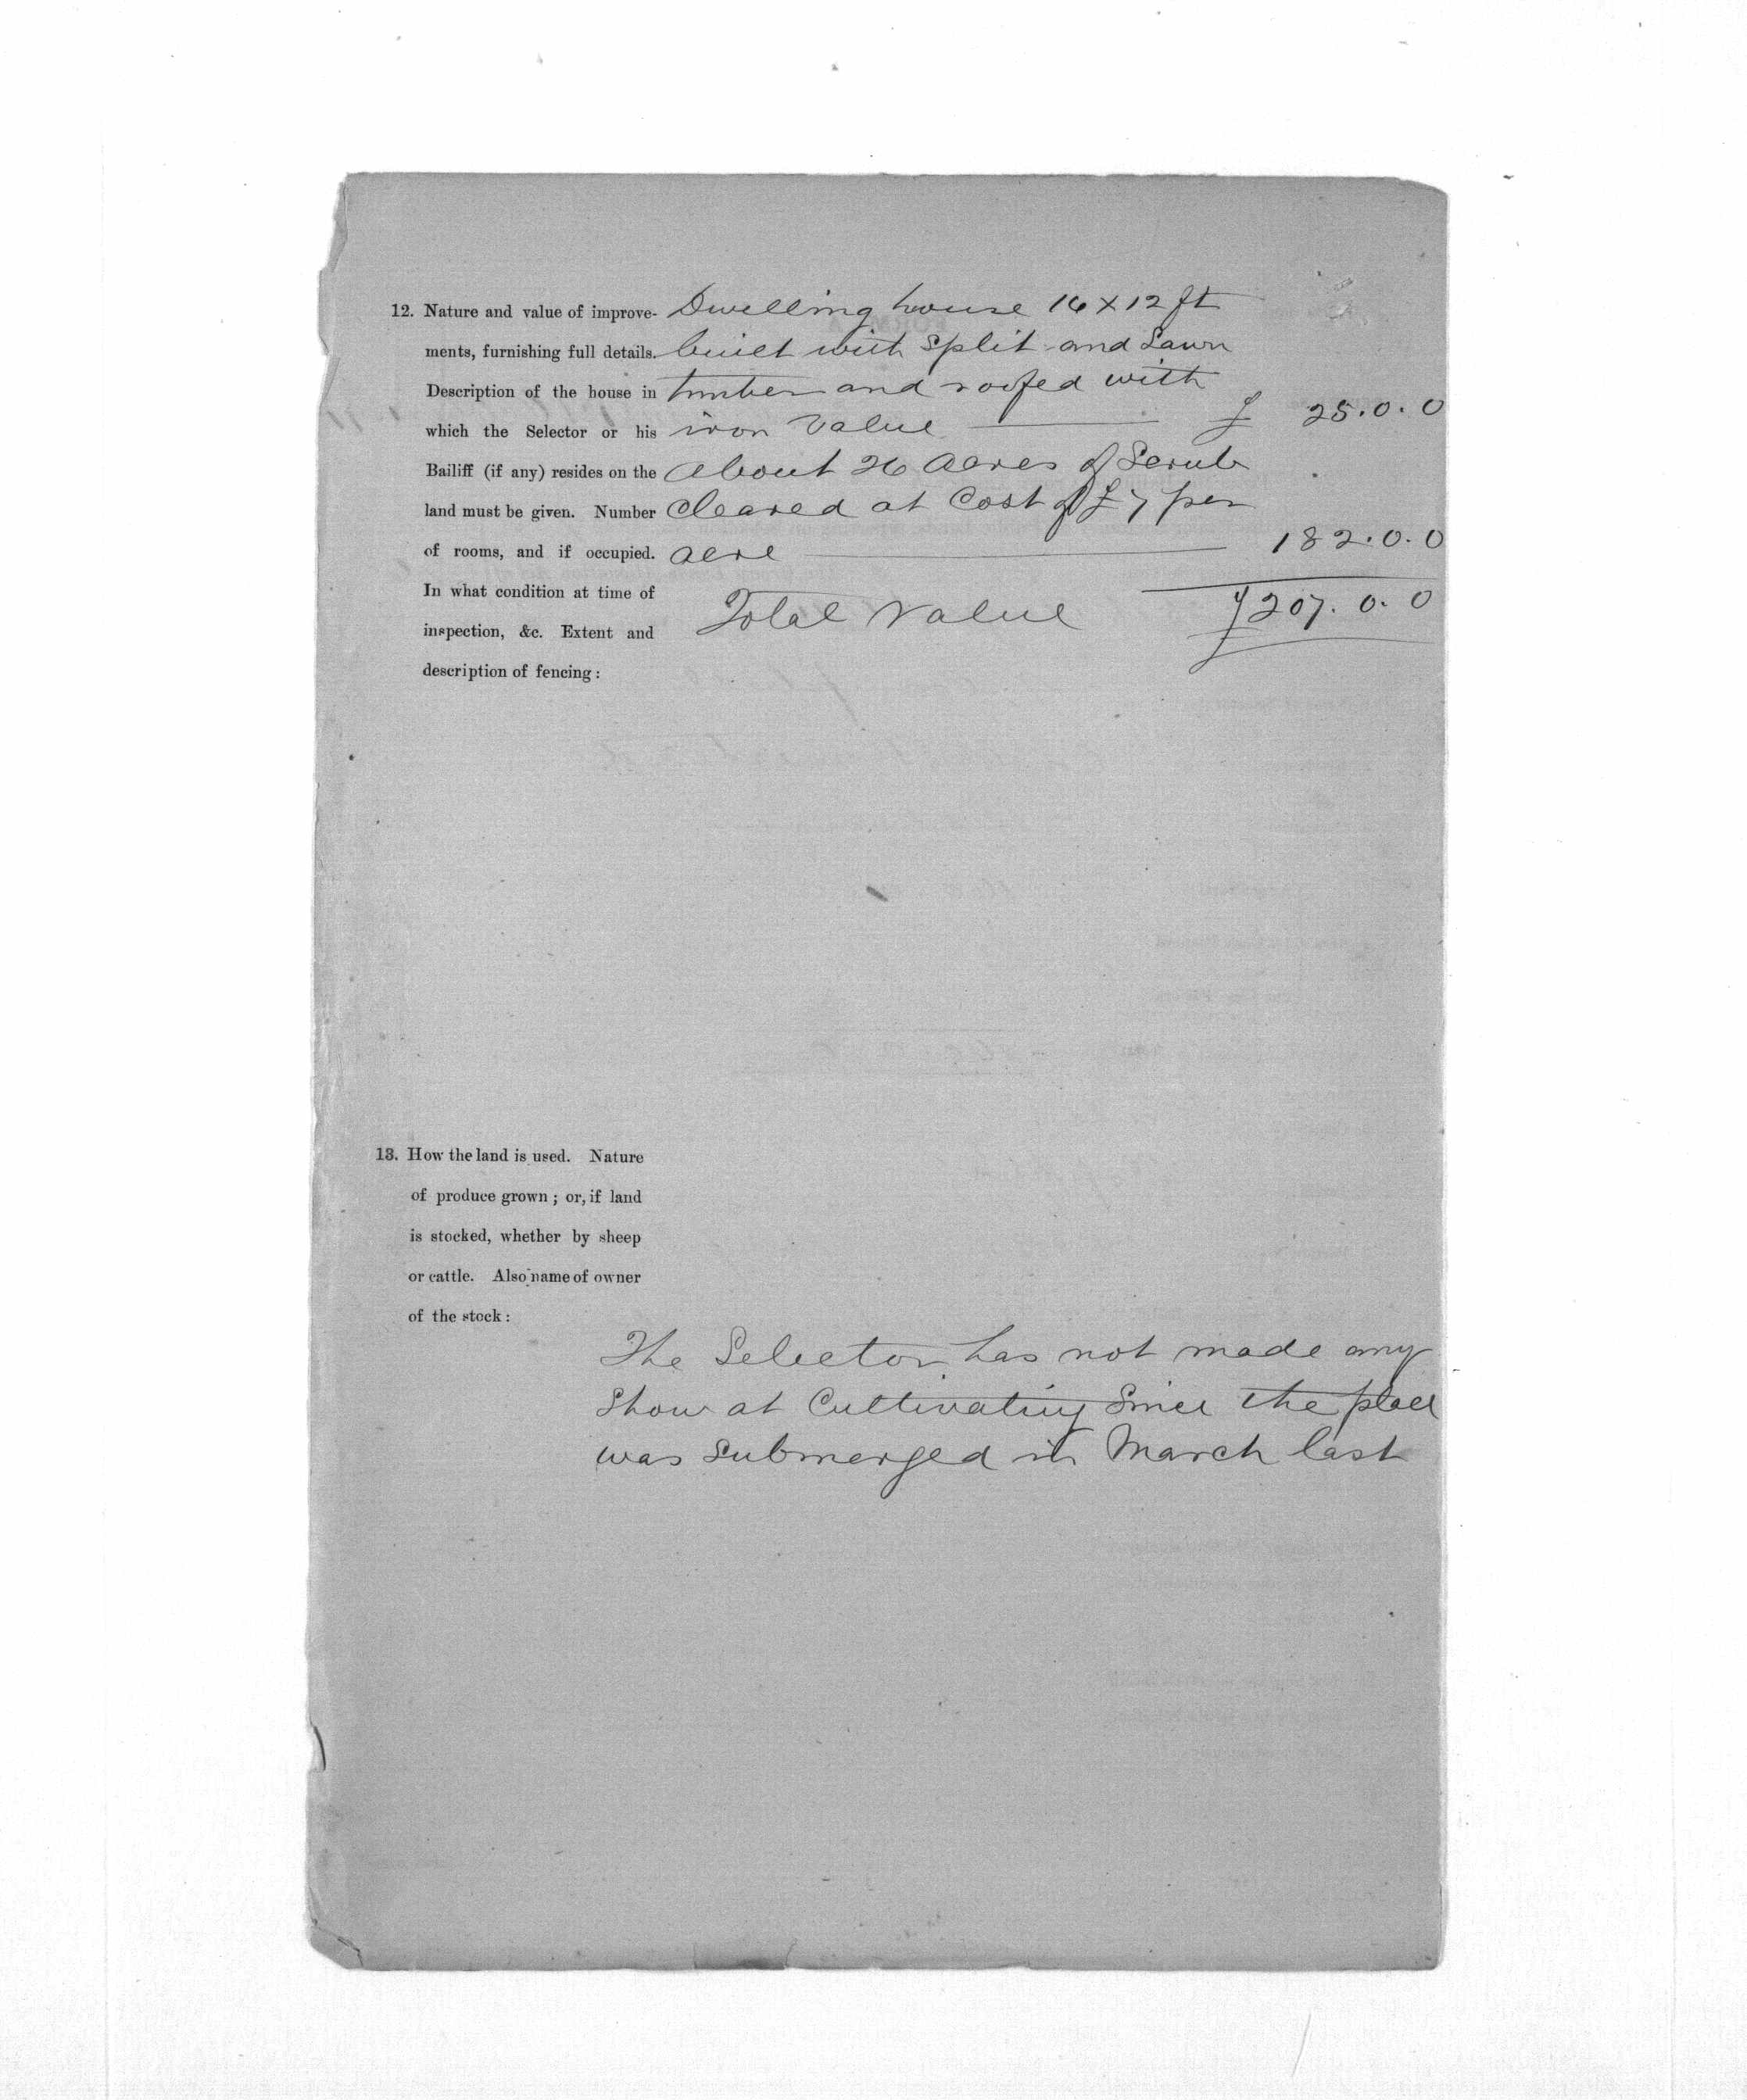 12. Nature and value of improve- Dwelling house 16 x 12 ft
ments, furnishing full details. built with Split and Sawn
Description of the house in timber and roofed with
which the Selector or his iron Value £ 25.0.0
Bailiff (if any) resides on the About 26 Acres of Scrub
land must be given. Number Cleared at Cost of £7 per
of rooms, and if occupied. acre 182.0.0
In what condition at time of
inspection, &c. Extent and Total Value £207.0.0
description of fencing:
13. How the land is used. Nature
of produce grown; or, if land
is stocked, whether by sheep
or cattle. Also name of owner
of the stock:
The Selector has not made any
Show at Cultivating Since the place
was Submerged in March last